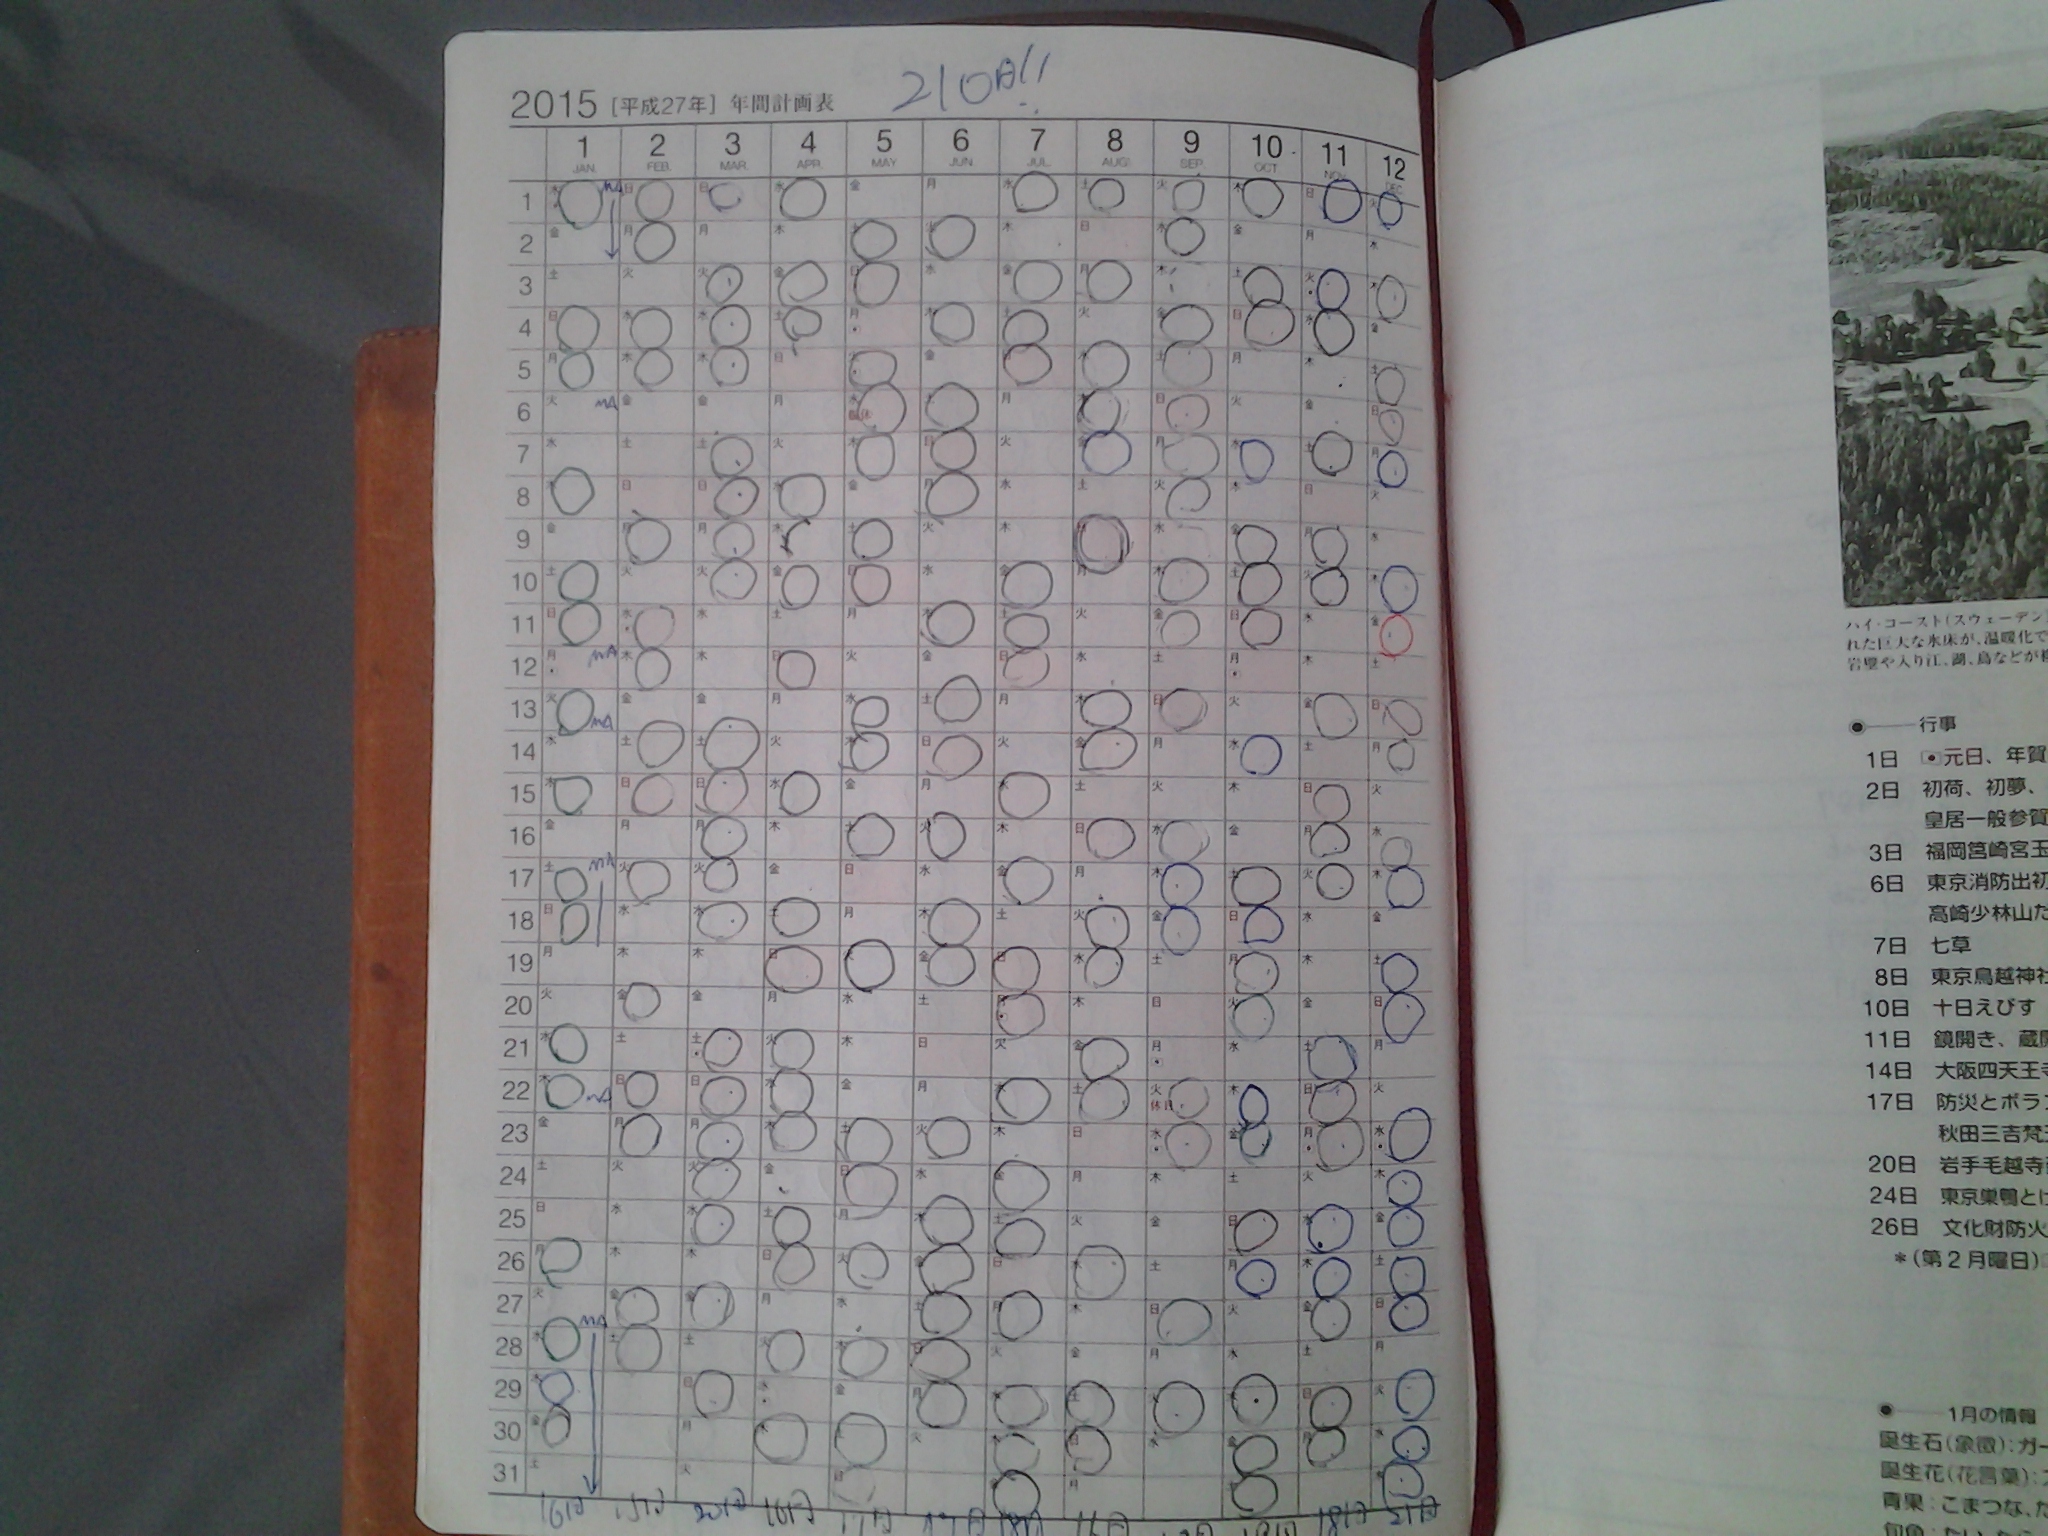 210日!!
2015 [平成27年] 年間計画表
1 2 3 4 5 6 7 8 9 10 11 12
JAN. FEB. MAR. APR. MAY JUN. JUL. AUG. SEP. OCT. NOV. DEC.
1 木 MA 日 日 水 金 月 水 土 火 木 日 火
2 金 月 月 木 土 火 木 日 水 金 月 水
3 土 火 火 金 日 水 金 月 木 土 火 木
4 日 水 水 土 月 木 土 火 金 日 水 金
5 月 木 木 日 火 金 日 水 土 月 木 土
6 火 MA 金 金 月 水 振休 土 月 木 日 火 金 日
7 水 土 土 火 木 日 火 金 月 水 土 月
8 木 日 日 水 金 月 水 土 火 木 日 火
9 金 月 月 木 土 火 木 日 水 金 月 水
10 土 火 火 金 日 水 金 月 木 土 火 木
11 日 水 水 土 月 木 土 火 金 日 水 金
12 月 MA 木 木 日 火 金 日 水 土 月 木 土
13 火 MA 金 金 月 水 土 月 木 日 火 金 日
14 水 土 土 火 木 日 火 金 月 水 土 月
15 木 日 日 水 金 月 水 土 火 木 日 火
16 金 月 月 木 土 火 木 日 水 金 月 水
17 土 MA 火 火 金 日 水 金 月 木 土 火 木
18 日 水 水 土 月 木 土 火 金 日 水 金
19 月 木 木 日 火 金 日 水 土 月 木 土
20 火 金 金 月 水 土 月 木 日 火 金 日
21 水 土 土 火 木 日 火 金 月 水 土 月
22 木 MA 日 日 水 金 月 水 土 火 休日 木 日 火
23 金 月 月 木 土 火 木 日 水 金 月 水
24 土 火 火 金 日 水 金 月 木 土 火 木
25 日 水 水 土 月 木 土 火 金 日 水 金
26 月 木 木 日 火 金 日 水 土 月 木 土
27 火 金 金 月 水 土 月 木 日 火 金 日
28 水 MA 土 土 火 木 日 火 金 月 水 土 月
29 木 日 水 金 月 水 土 火 木 日 火
30 金 月 木 土 火 木 日 水 金 月 水
31 土 火 日 金 月 土 木
16日 15日 20日 16日 17日 18日 18日 21日
ハイ・コースト(スウェーデン)
れた巨大な氷床が、温暖化で
岩壁や入り江、湖、島などが
行事
1日 元日、年賀
2日 初荷、初夢、
皇居一般参賀
3日 福岡筥崎宮玉
6日 東京消防出初
高崎少林山だ
7日 七草
8日 東京鳥越神社
10日 十日えびす
11日 鏡開き、蔵開
14日 大阪四天王寺
17日 防災とボラン
秋田三吉梵天
20日 岩手毛越寺
24日 東京巣鴨とげ
26日 文化財防火
*(第2月曜日)
1月の情報
誕生石(象徴):ガー
誕生花(花言葉):
青果:こまつな、た